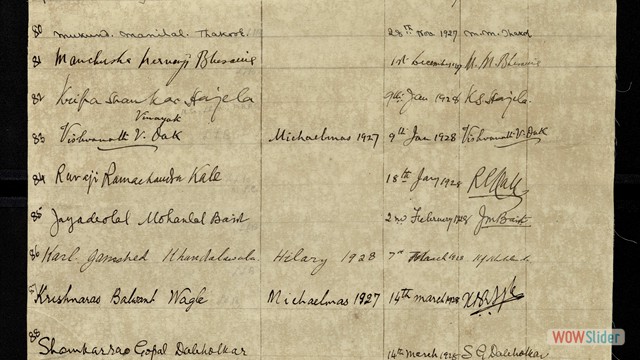 80 Mukund. Manilal. Thakore. 28th Nov 1927 M.M. Thakor
81 Manchersha 1st December 1927 M.
82 Kripa Shankar Hajela 9th Jan 1928 K.S. Hajela.
Vinayak
83 Vishvanath V. Oak Michaelmas 1927 9th Jan 1928 Vishvanath V. Oak
84 Ravaji Ramachandra Kale 18th Jany 1928 R. R. Kale
85 Jayadeolal Mohanlal 2nd February 1928
86 Karl Jamshed Khandalavala Hilary 1928 7th March 1928
87 Krishnarao Balwant Wagle Michaelmas 1927 14th march 1928
88 Shankarrao Gopal Dabholkar 14th march 1928 S G Dabholkar
WOWSlider